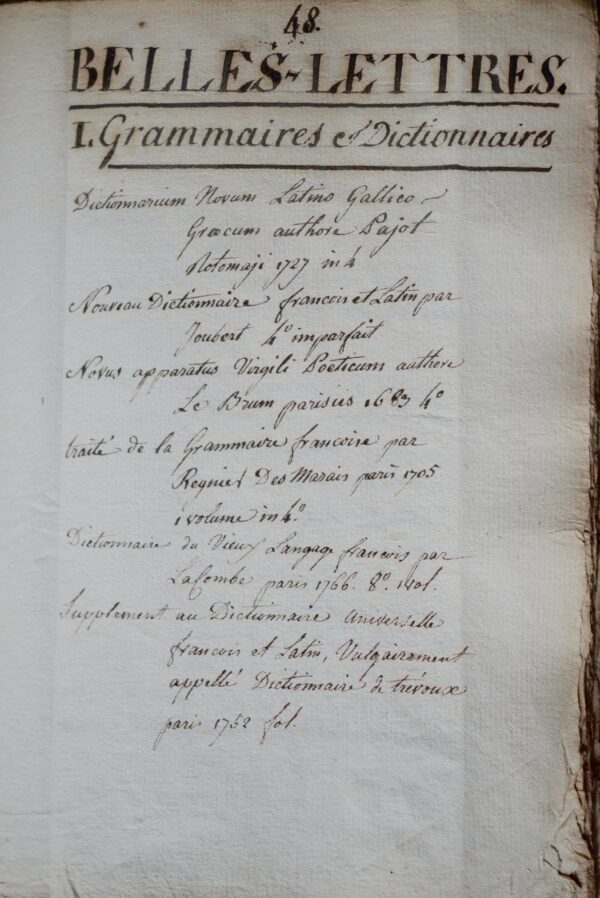 48.
BELLES-LETTRES.
I. Grammaires et Dictionnaires
Dictionnarium Novum Latino Gallico-
Græcum authore Pajot
Rotomaji 1727 in 4
Nouveau Dictionnaire francois et Latin par
Joubert 4º imparfait
Novus apparatus Virgili Poeticum authore
Le Brum parisiis 1683 4º
traité de la Grammaire francoise par
Regnier Des Marais paris 1705
1 volume in 4.º
Dictionnaire du Vieux Langage francois par
LaCombe paris 1766. 8º. 1 vol.
Supplement au Dictionnaire Universelle
francois et Latin, Vulgairement
appellé Dictionnaire de trévoux
paris 1752 fol.